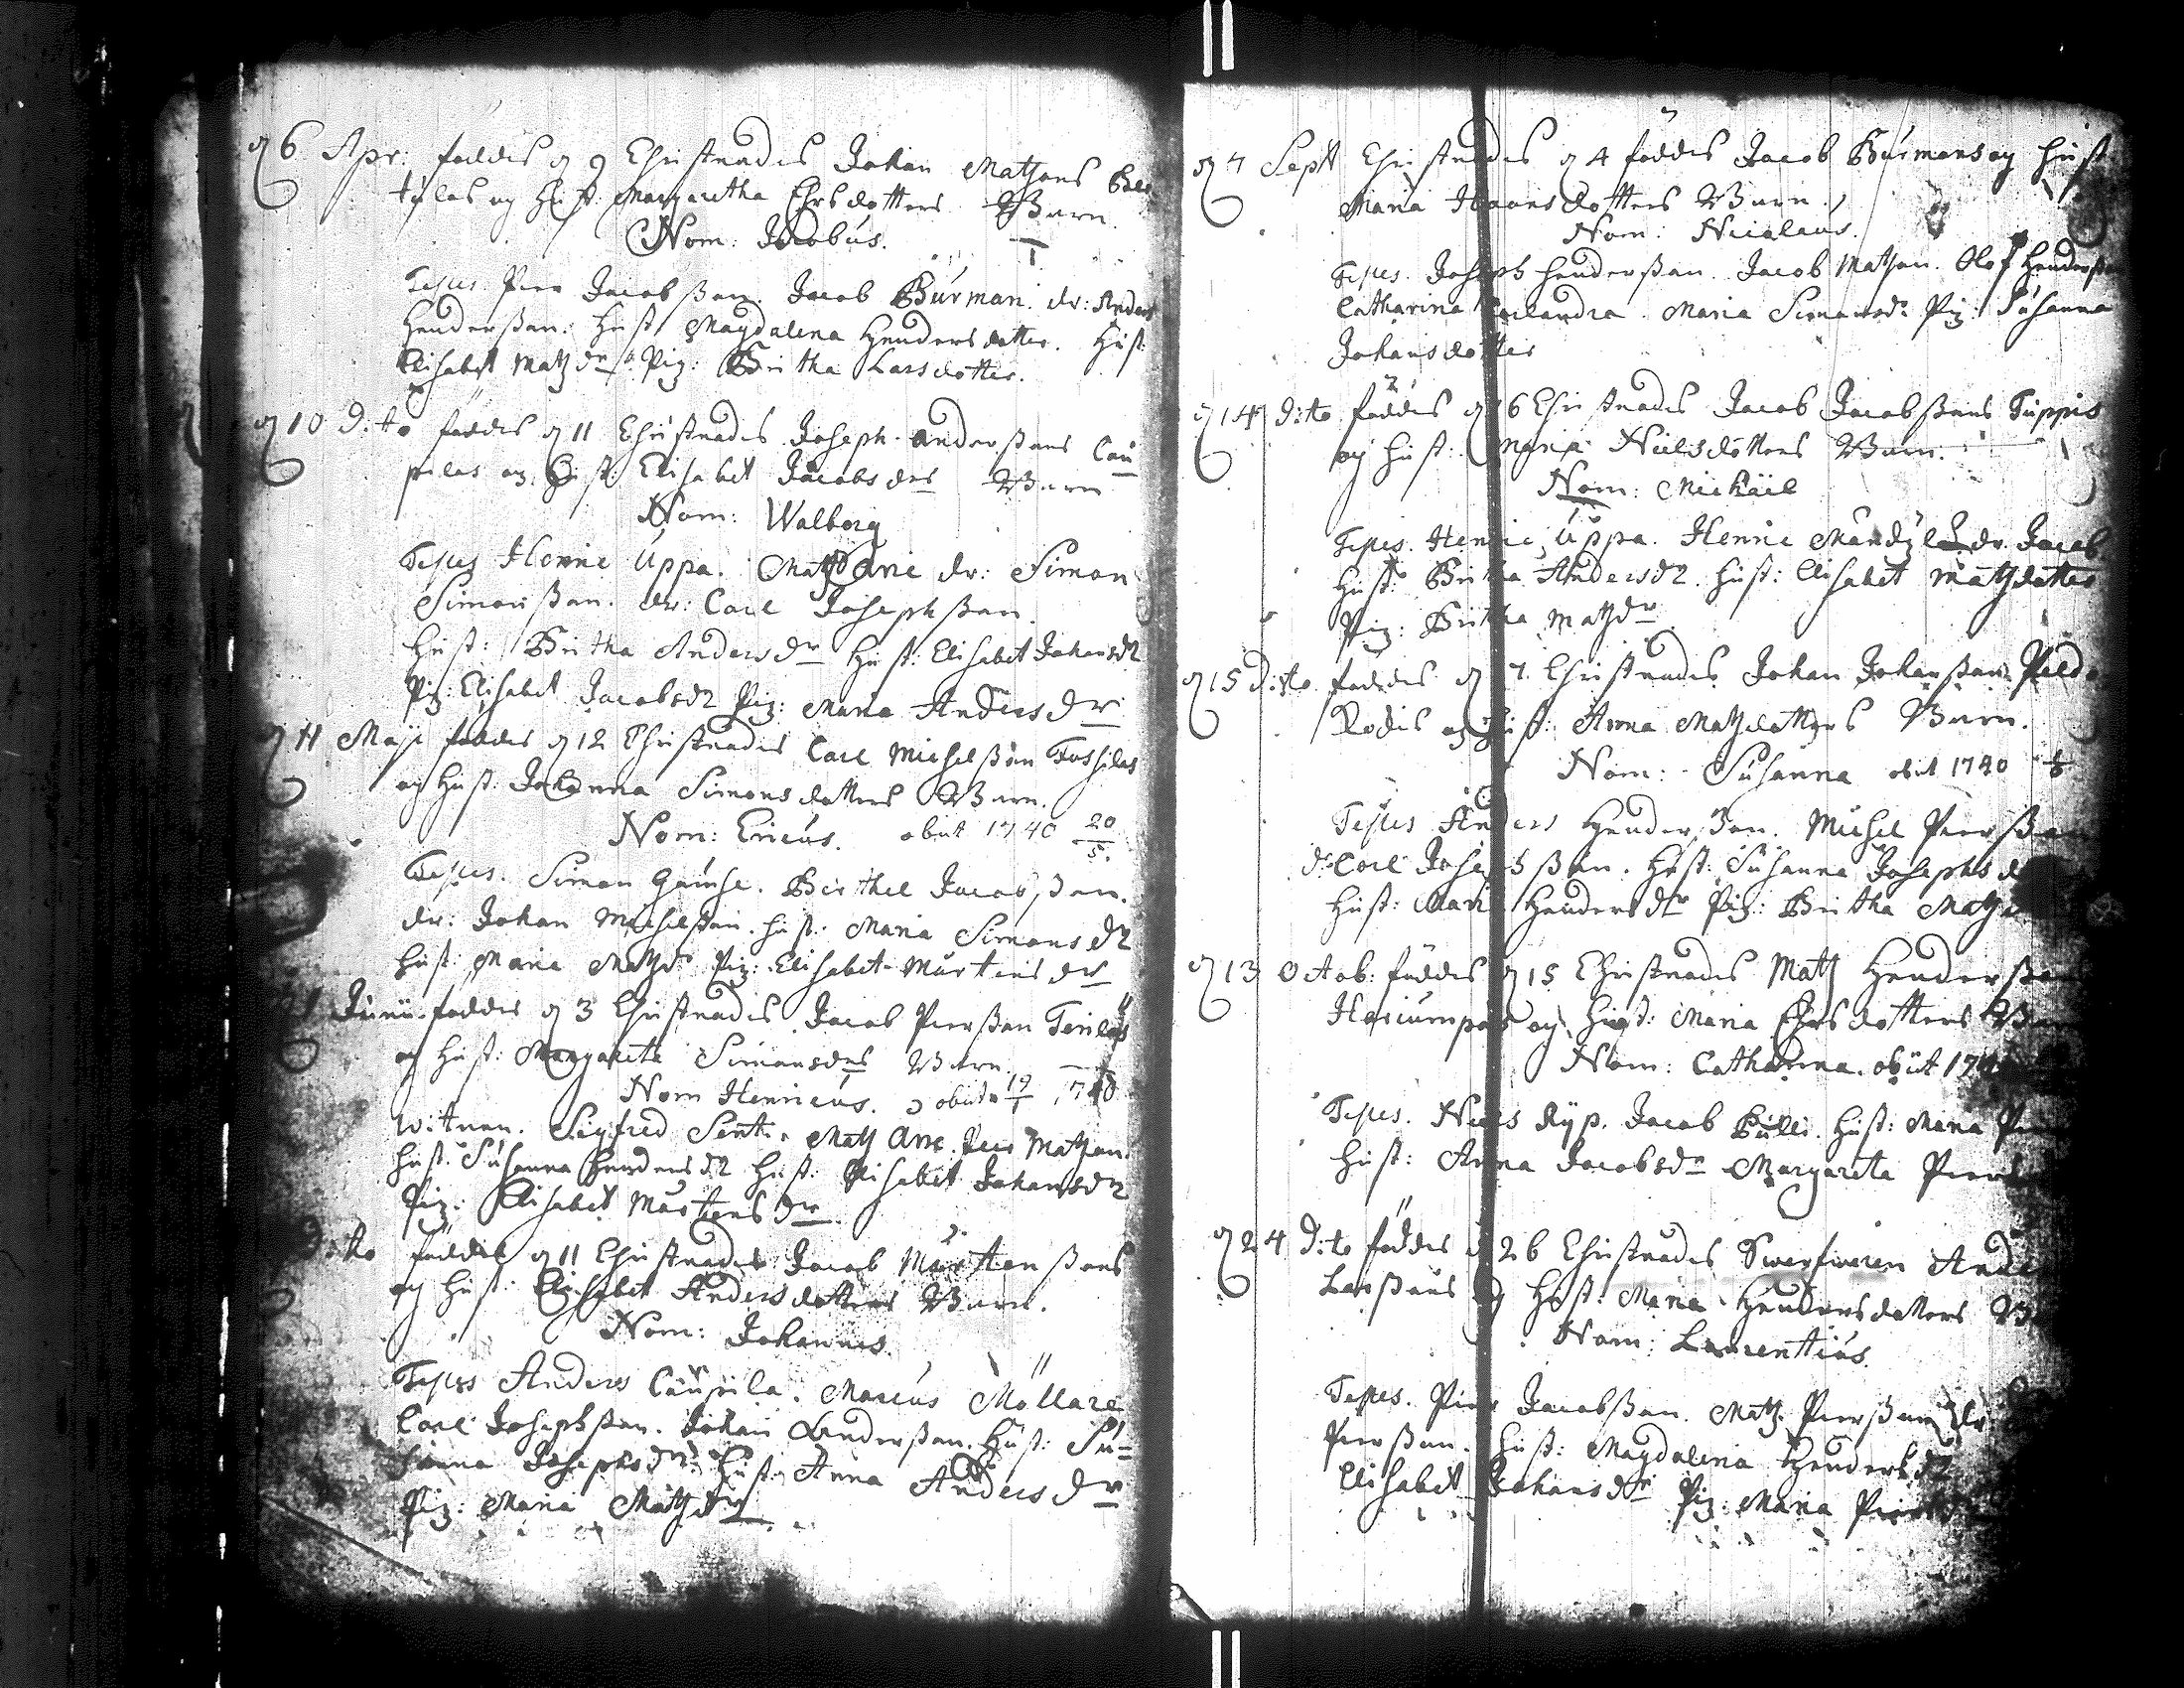 d 6 Apr: föddes d 9 Christnades Johan Matsons
tylas og Hust: Margaretha Ehrsdotters Barn.
Nom: Jacobus.
Testes Pier Jacobsson. Jacob Burman. dr: Anders
Hendersson. Hust Magdalena Hendersdotter. Hust:
Elisabet Matzdr. Pig: Britha Larsdotter.
d 10 Dito föddes d 11 Christnades Joseph Anderssons Cau
pilas og Hust: Elisabet Jacobsdrs Barn
Nom: Walborg
Testes Henric Uppa. Matz Arie dr: Simon
Simonsson. dr: Carl Josephsson.
Hust: Britha Andersdr Hust: Elisabet Johansdr
Pig: Elisabet Jacobsdr Pig: Maria Andersdr
d 11 Maji föddes d 12 Christnades Carl Michelsson
og Hust: Johanna Simonsdotters Barn.
Nom: Ericus. obiit 1740 20/5.
Testes. Simon Gauche. Berthel Jacobsson.
dr: Johan Michelsson. Hust: Maria Simonsdr
Hust: Maria Matzdr Pig: Elisabet Mårtensdr
1 Junii föddes d 3 Christnades Jacob Piersson
og Hust: Margareta Simonsdrs Barn.
Nom Henricus. obiit 19/1 1740
Witnen. Sigfred Sent. Matz Arie. Pier Matson.
Hust: Susanna Hendersdr Hust: Elisabet Johansdr
Pig: Elisabet Mårtensdr.
Dito föddes d 11 Christnades Jacob Mårtenssons
og Hust: Elisabet Andersdotters Barn.
Nom: Johannes.
Testes Anders Caupila. Marcus Möllare
Carl Josephsson. Johan Andersson. Hust: Su=
sanna Josephsdr. Hust: Anna Andersdr
Pig: Maria Matzdr
d 7 Sept Christnades d 4 föddes Jacob Burmans og Hust
Maria Hansdotters Barn.
Nom: Nicolaus.
Testes. Joseph Hendersson. Jacob Matson. Olof Hendersson
Catharina Maria Simonsdr Pig: Susanna
Johansdotter
d 14 Dito föddes d 16 Christnades Jacob Jacobssons Tuppis
og Hust: Maria Nielsdotters Barn.
Nom: Michäel
Testes. Henric Uppa. Henric dr. Jacob
Hust: Britha Andersdr. Hust: Elisabet Matzdotter
Pig: Britha Matzdr.
d 15 Dito föddes d 17 Christnades Johan Johansson
og Hust: Anna Matzdotters Barn.
Nom: Susanna obiit 1740
Testes Anders Hendersson. Michel Piersson
dr Carl Josephsson. Hust: Susanna Josephsd
Hust: Maria Hendersdr Pig: Britha Matz
d 13 Octob: föddes d 15 Christnades Matz Hendersson
og Hust: Maria Ehrsdotters
Nom: Catharina. obiit 174
Testes. Niels Ryp. Jacob Pulli. Hust: Maria
Hust: Anna Jacobsdr Margareta Piers
d 24 Dito föddes d 26 Christnades Swarfwaren Ande
Larssons og Hust: Maria Hendersdotters
Nom: Laurentius.
Testes. Pier Jacobsson. Matz Piersson dr
Piersson. Hust: Magdalena Hendersdr
Elisabet Johansdr Pig: Maria